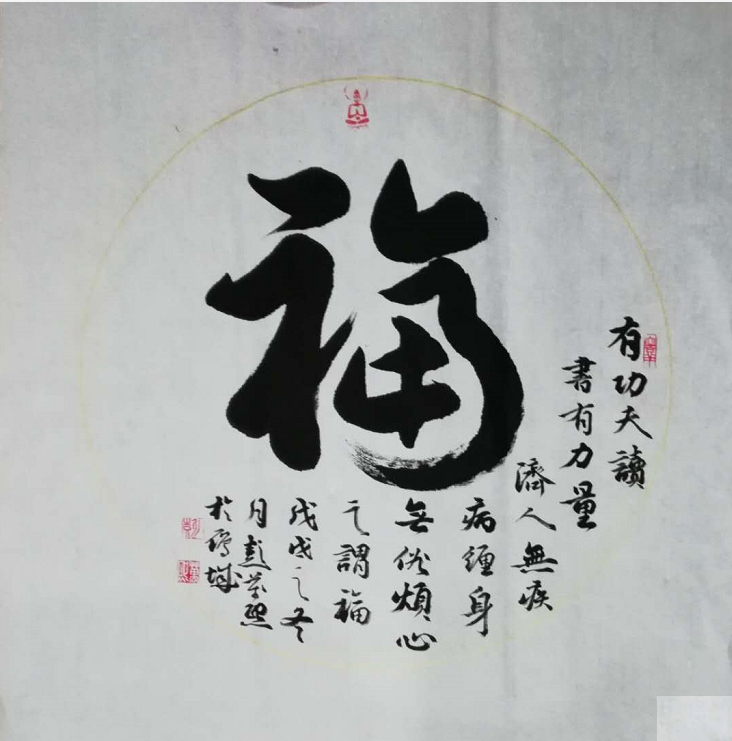 福
有功夫讀
書有力量
濟人無疾
病纏身
無俗煩心
之謂福
戊戌之冬
月彭熙
於城